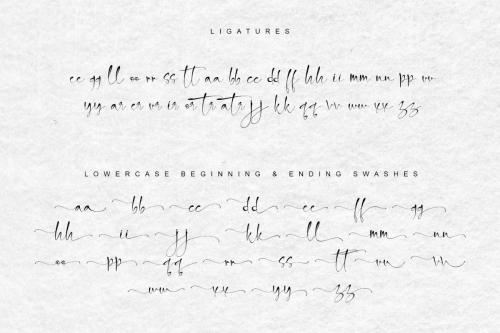 LIGATURES
ee gg ll oo rr ss tt aa bb cc dd ff hh ii mm nn pp vv
yy ar er ur ir or tr atr jj kk qq vv ww xx zz
LOWERCASE BEGINNING & ENDING SWASHES
aa bb cc dd ee ff gg
hh ii jj kk ll mm nn
oo pp qq rr ss tt uu vv
ww xx yy zz